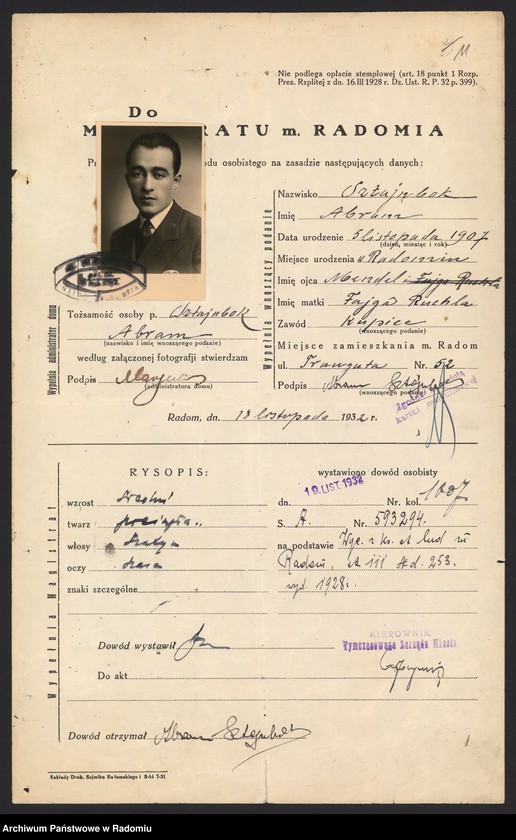 Nie podlega opłacie stemplowej (art. 18 punkt 1 Rozp.
Prez. Rzplitej z dn. 16.III 1928 r. Dz. Ust. R. P. 32 p. 399).
Do
M RATU m. RADOMIA
odu osobistego na zasadzie następujących danych:
Wypełnia wnoszący podanie
Nazwisko Sztajnbok
Imię Abram
Data urodzenie 5 listopada 1907
(dzień, miesiąc i rok)
Miejsce urodzenia w Radomiu
Imię ojca Mendel i Fajga Ruchla
Imię matki Fajga Ruchla
Zawód Kupiec
(wnoszącego podanie)
Miejsce zamieszkania m. Radom
ul. Traugutta Nr. 52
Podpis Abram Sztajnbok
(wnoszącego podanie)
Wypełnia administrator domu
Tożsamość osoby p. Sztajnbok
Abram
(nazwisko i imię wnoszącego podanie)
według załączonej fotografii stwierdzam
Podpis
(administratora domu)
Radom, dn. 18 listopada 1932 r.
Wypełnia Magistrat
RYSOPIS:
wzrost średni
twarz
włosy
oczy
znaki szczególne
wystawiono dowód osobisty
19 LIST. 1932
dn. Nr. kol. 1007
S. A. Nr. 593294.
na podstawie Wyc. z ks. st. lud. m.
Radom, st III sd. 253.
wyd. 1928 r.
Dowód wystawił
Do akt
KIEROWNIK
Tymczasowego Zarządu Miasta
Dowód otrzymał Abram Sztejnbok
Zakłady Druk. Sejmiku Radomskiego i S-ki 7-31
Archiwum Państwowe w Radomiu